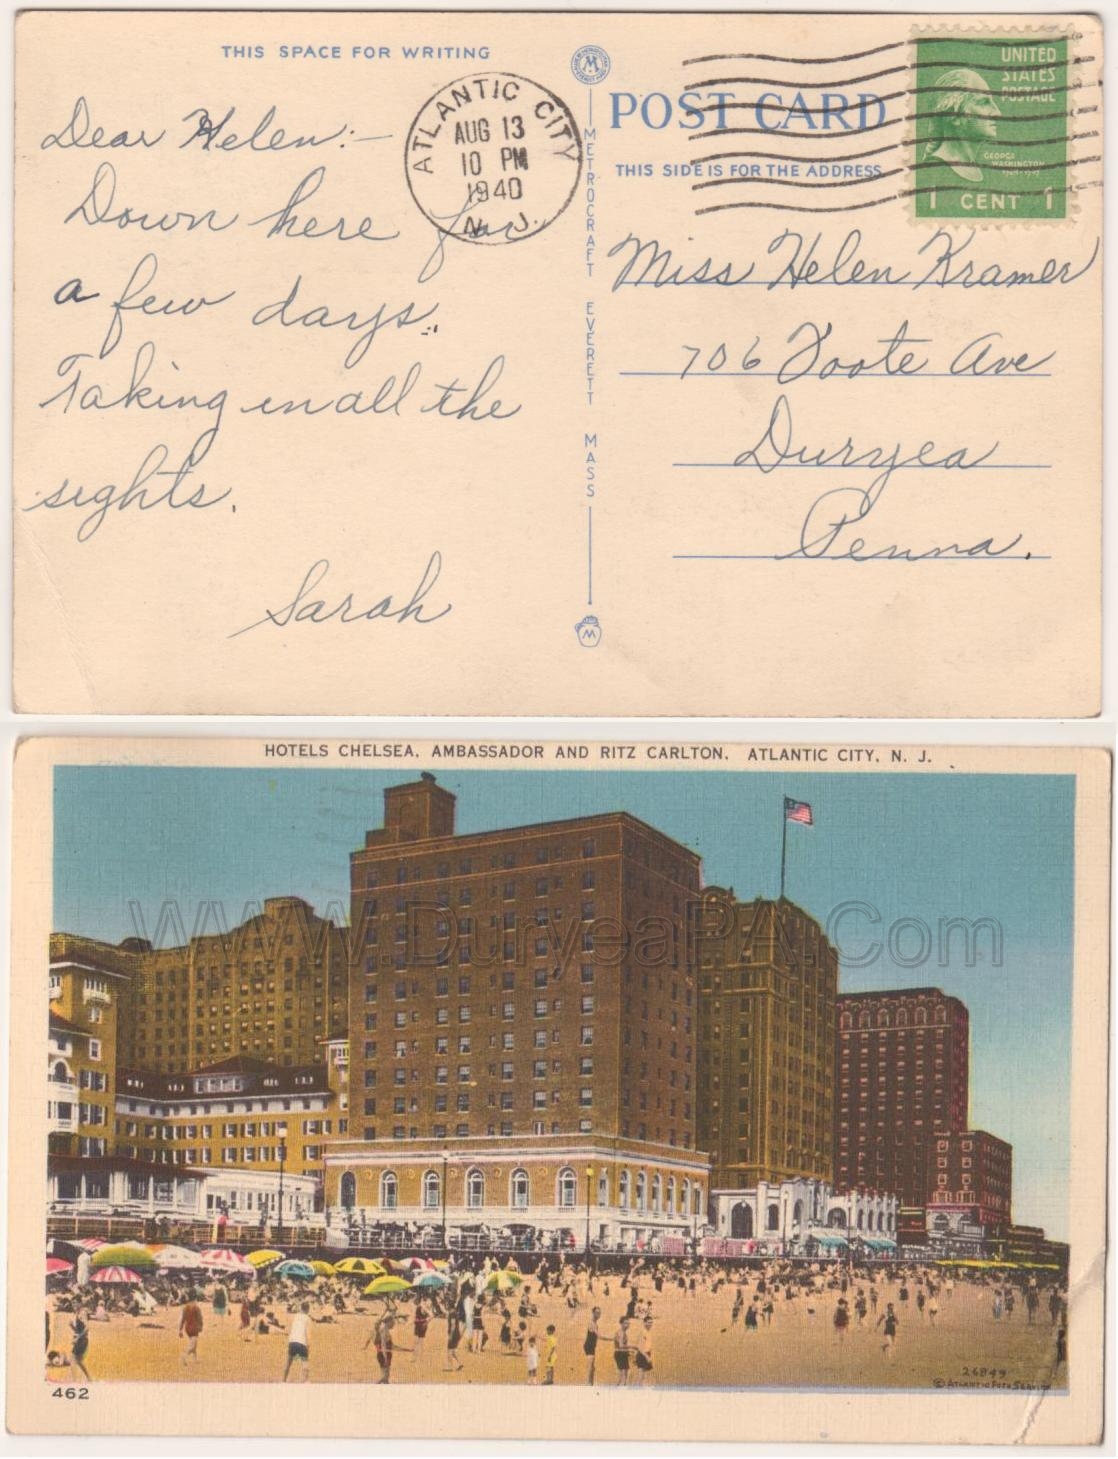 THIS SPACE FOR WRITING
Dear Helen:-
Down here for
a few days.
Taking in all the
sights.
Sarah
ATLANTIC CITY
AUG 13
10 PM
1940
N. J.
M
METROCRAFT EVERETT MASS
M
POST CARD
THIS SIDE IS FOR THE ADDRESS
UNITED
STATES
POSTAGE
GEORGE
WASHINGTON
1 CENT 1
Miss Helen Kramer
706 Foote Ave
Duryea
Penna.
HOTELS CHELSEA, AMBASSADOR AND RITZ CARLTON, ATLANTIC CITY, N. J.
WWW.DuryeaPA.Com
26849
© ATLANTIC FOTO SERVICE
462